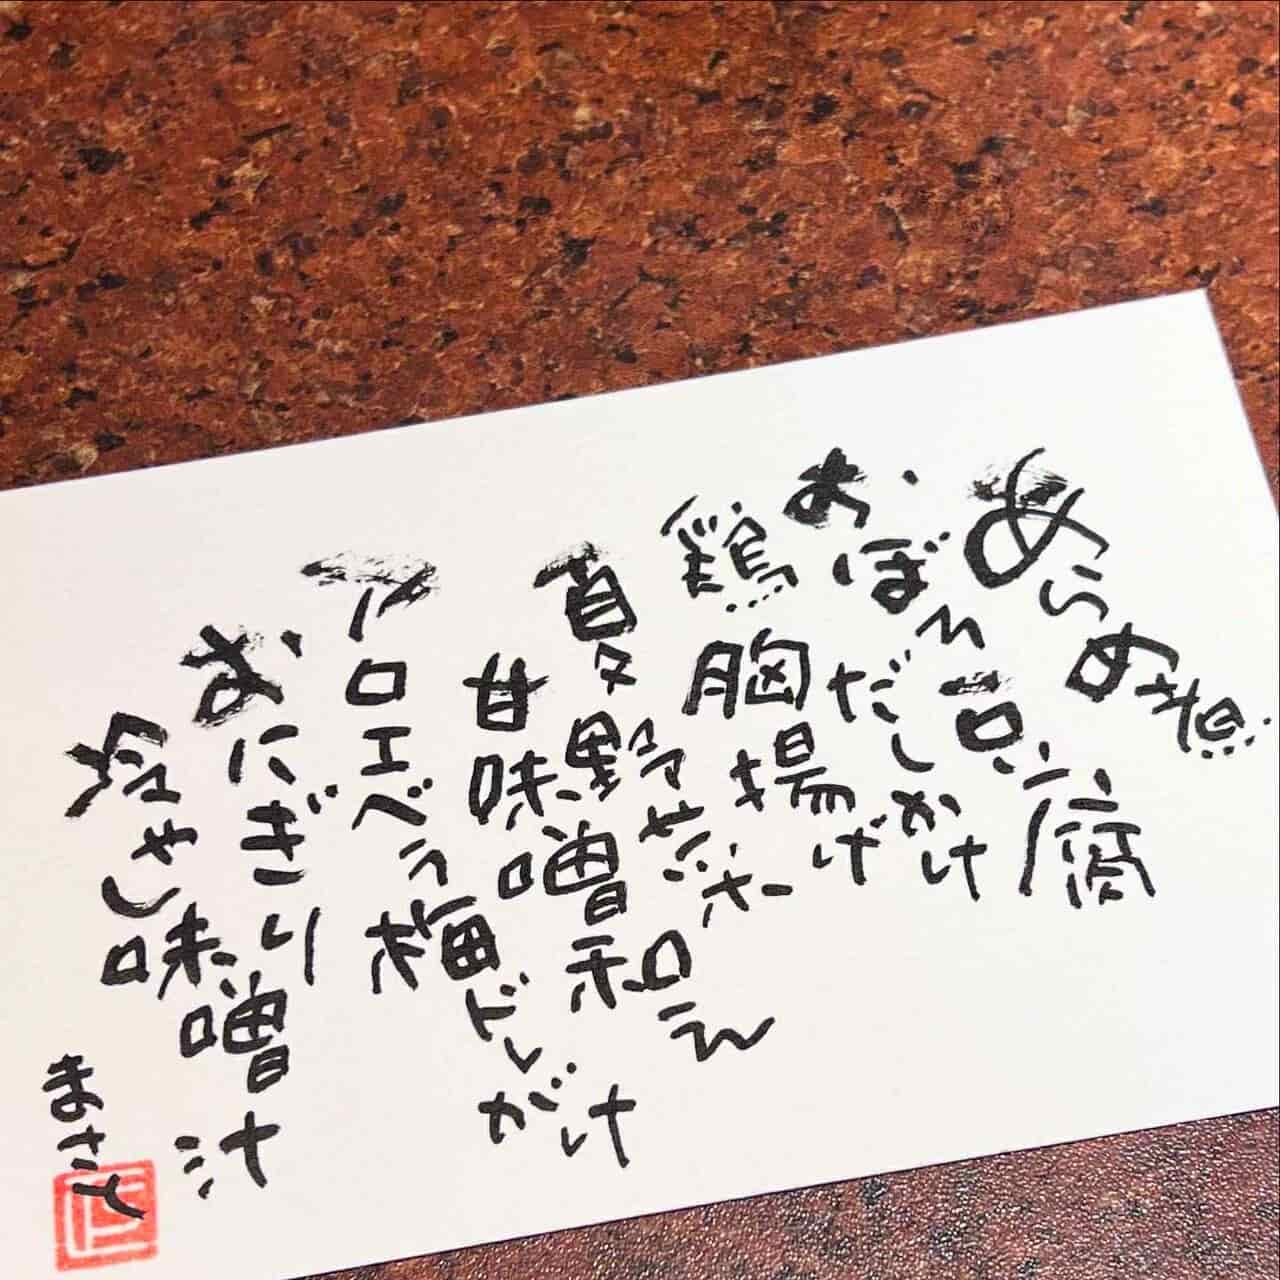 あらめ煮
おぼろ豆腐
だしかけ
鶏胸揚げ
夏野菜
甘味噌和え
アロエベラ梅ドレがけ
おにぎり
冷やし味噌汁
まさと